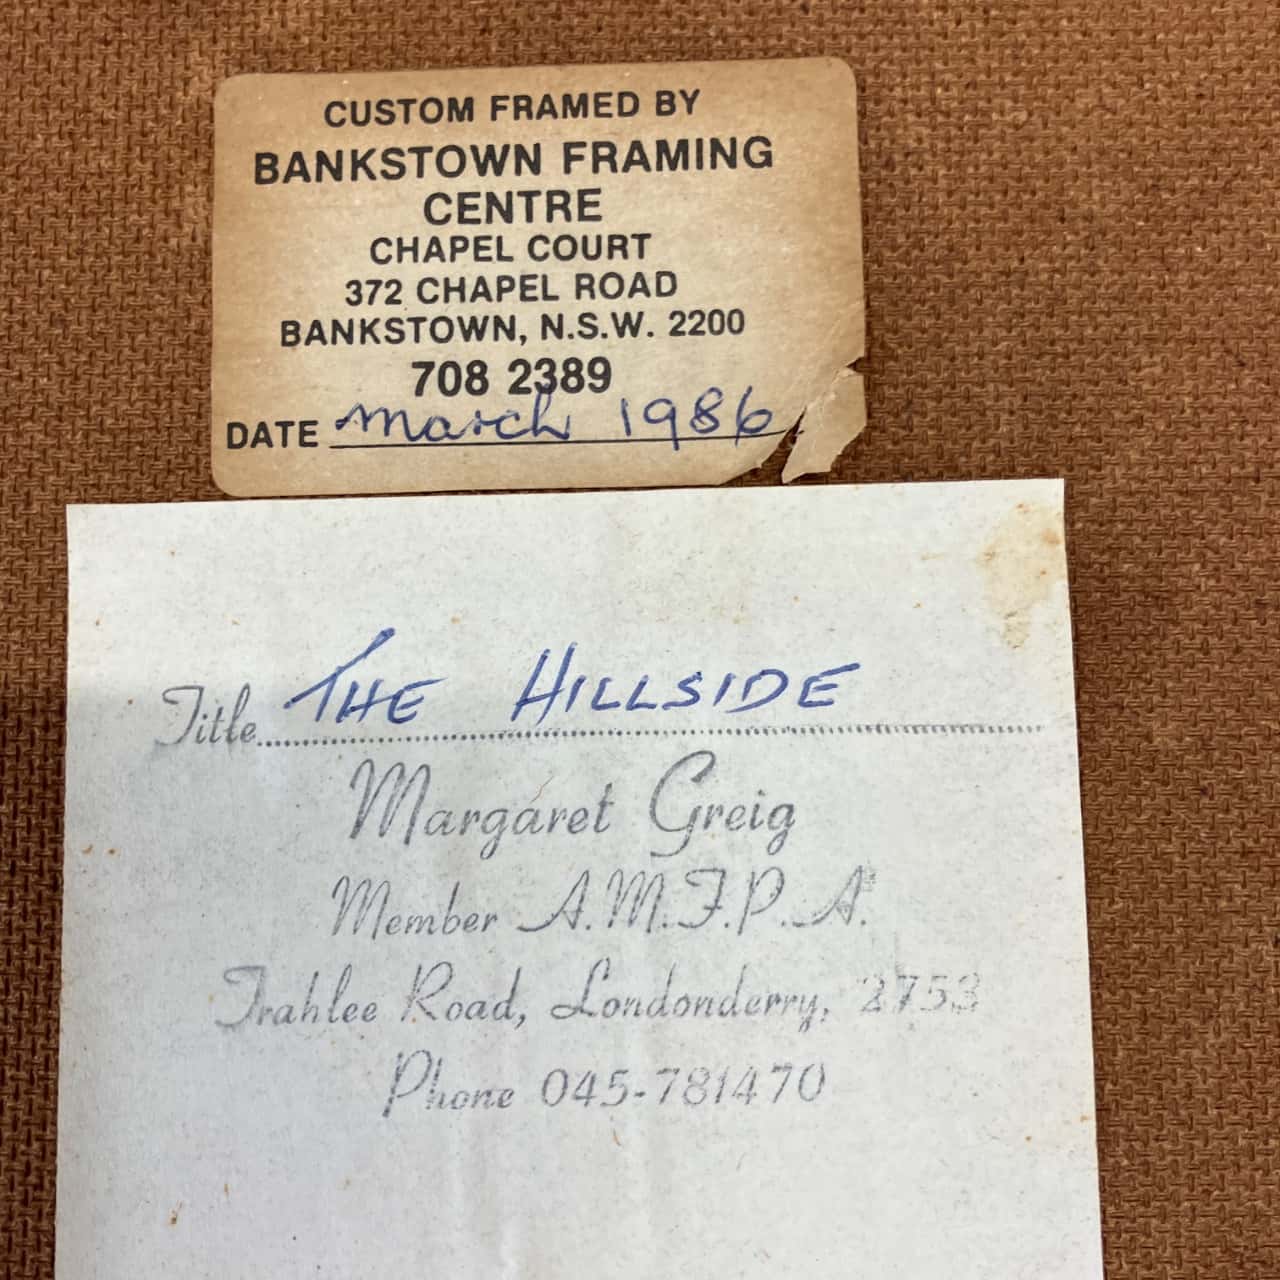 CUSTOM FRAMED BY
BANKSTOWN FRAMING
CENTRE
CHAPEL COURT
372 CHAPEL ROAD
BANKSTOWN, N.S.W. 2200
708 2389
DATE March 1986
Title THE HILLSIDE
Margaret Greig
Member A.M.F.P.A.
Trahlee Road, Londonderry, 2753
Phone 045-781470